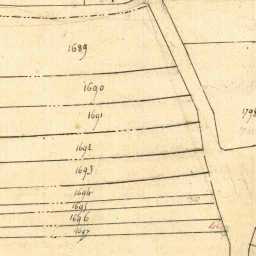 1689
1690
1691
1692
1693
1694
1695
1696
1697